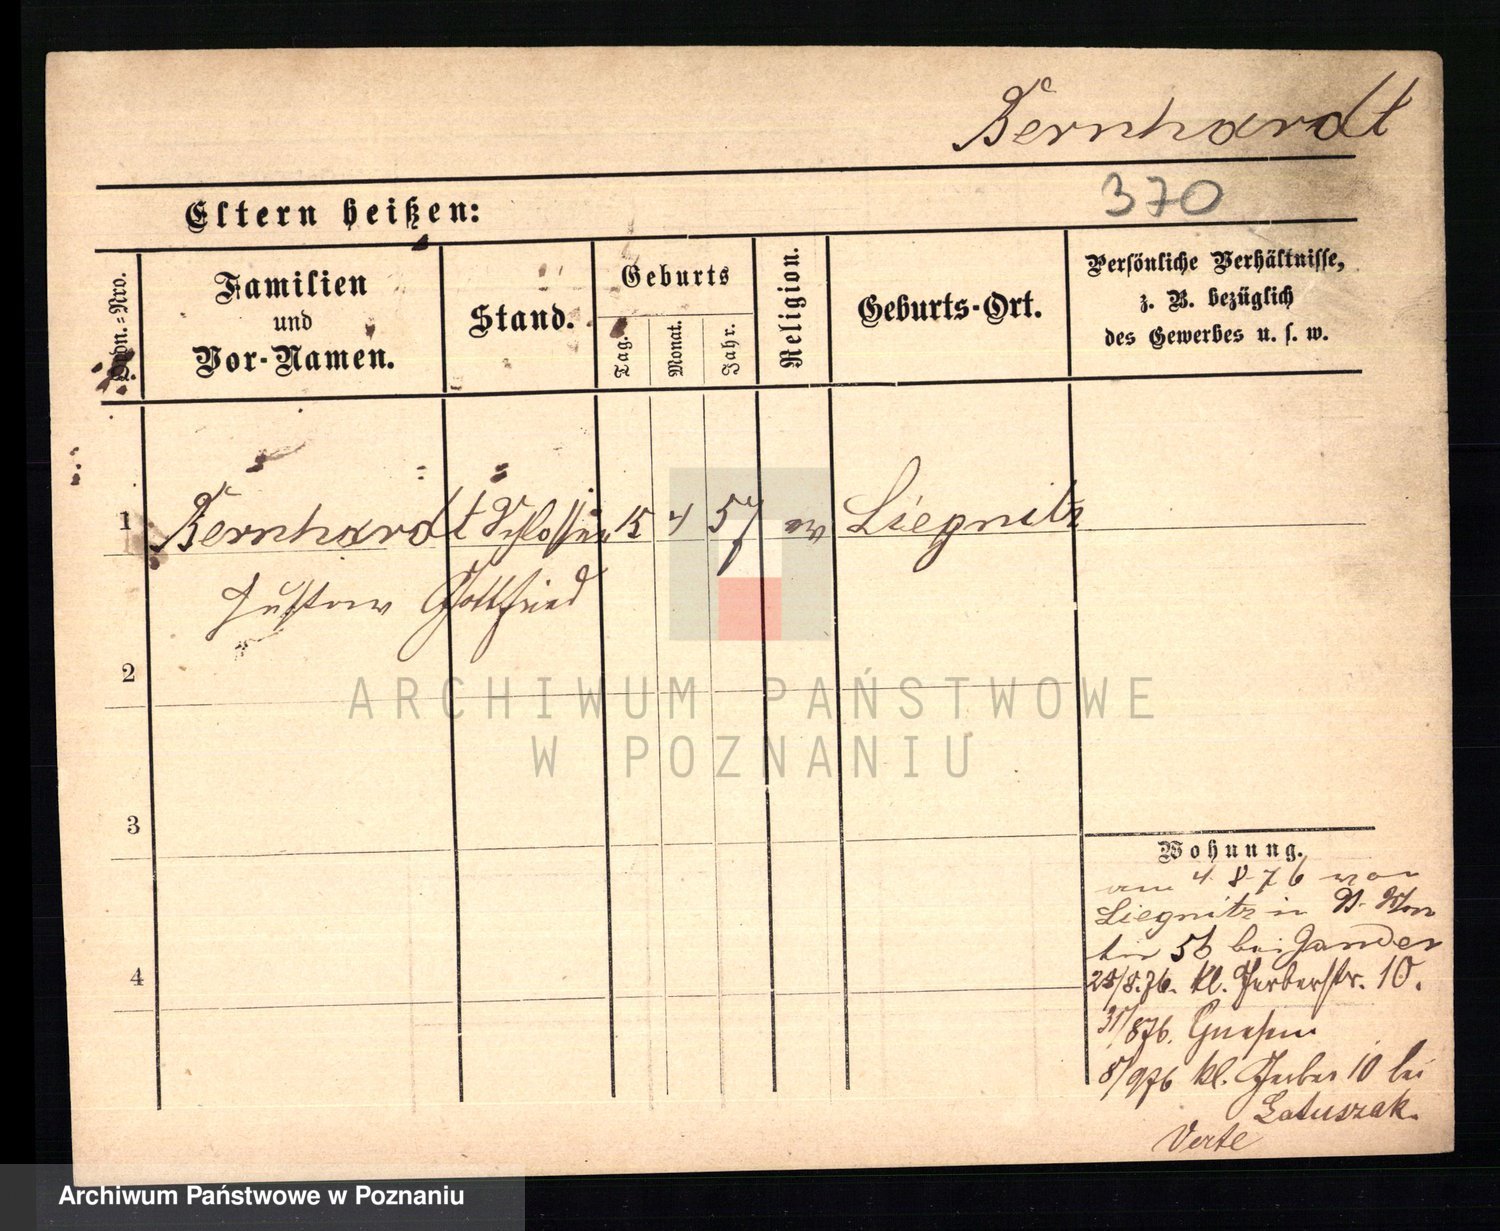 Bernhardt
370
Eltern heißen:
Ordn.=Nro.
Familien
und
Vor-Namen.
Stand.
Geburts
Tag.
Monat.
Jahr.
Religion.
Geburts-Ort.
Persönliche Verhältnisse,
z. B. bezüglich
des Gewerbes u. s. w.
1 Bernhardt Schlosser 15 4 57 ev Liegnitz
Gustav Gottfried
2
3
4
Wohnung.
am 4. 8. 76 von
Liegnitz in
56 bei Jander
28/8.76. kl. Gerberstr. 10.
31/876. Gnesen
8/976 kl. Gerber 10 bei
Latuszak.
Verte
ARCHIWUM PAŃSTWOWE
W POZNANIU
Archiwum Państwowe w Poznaniu